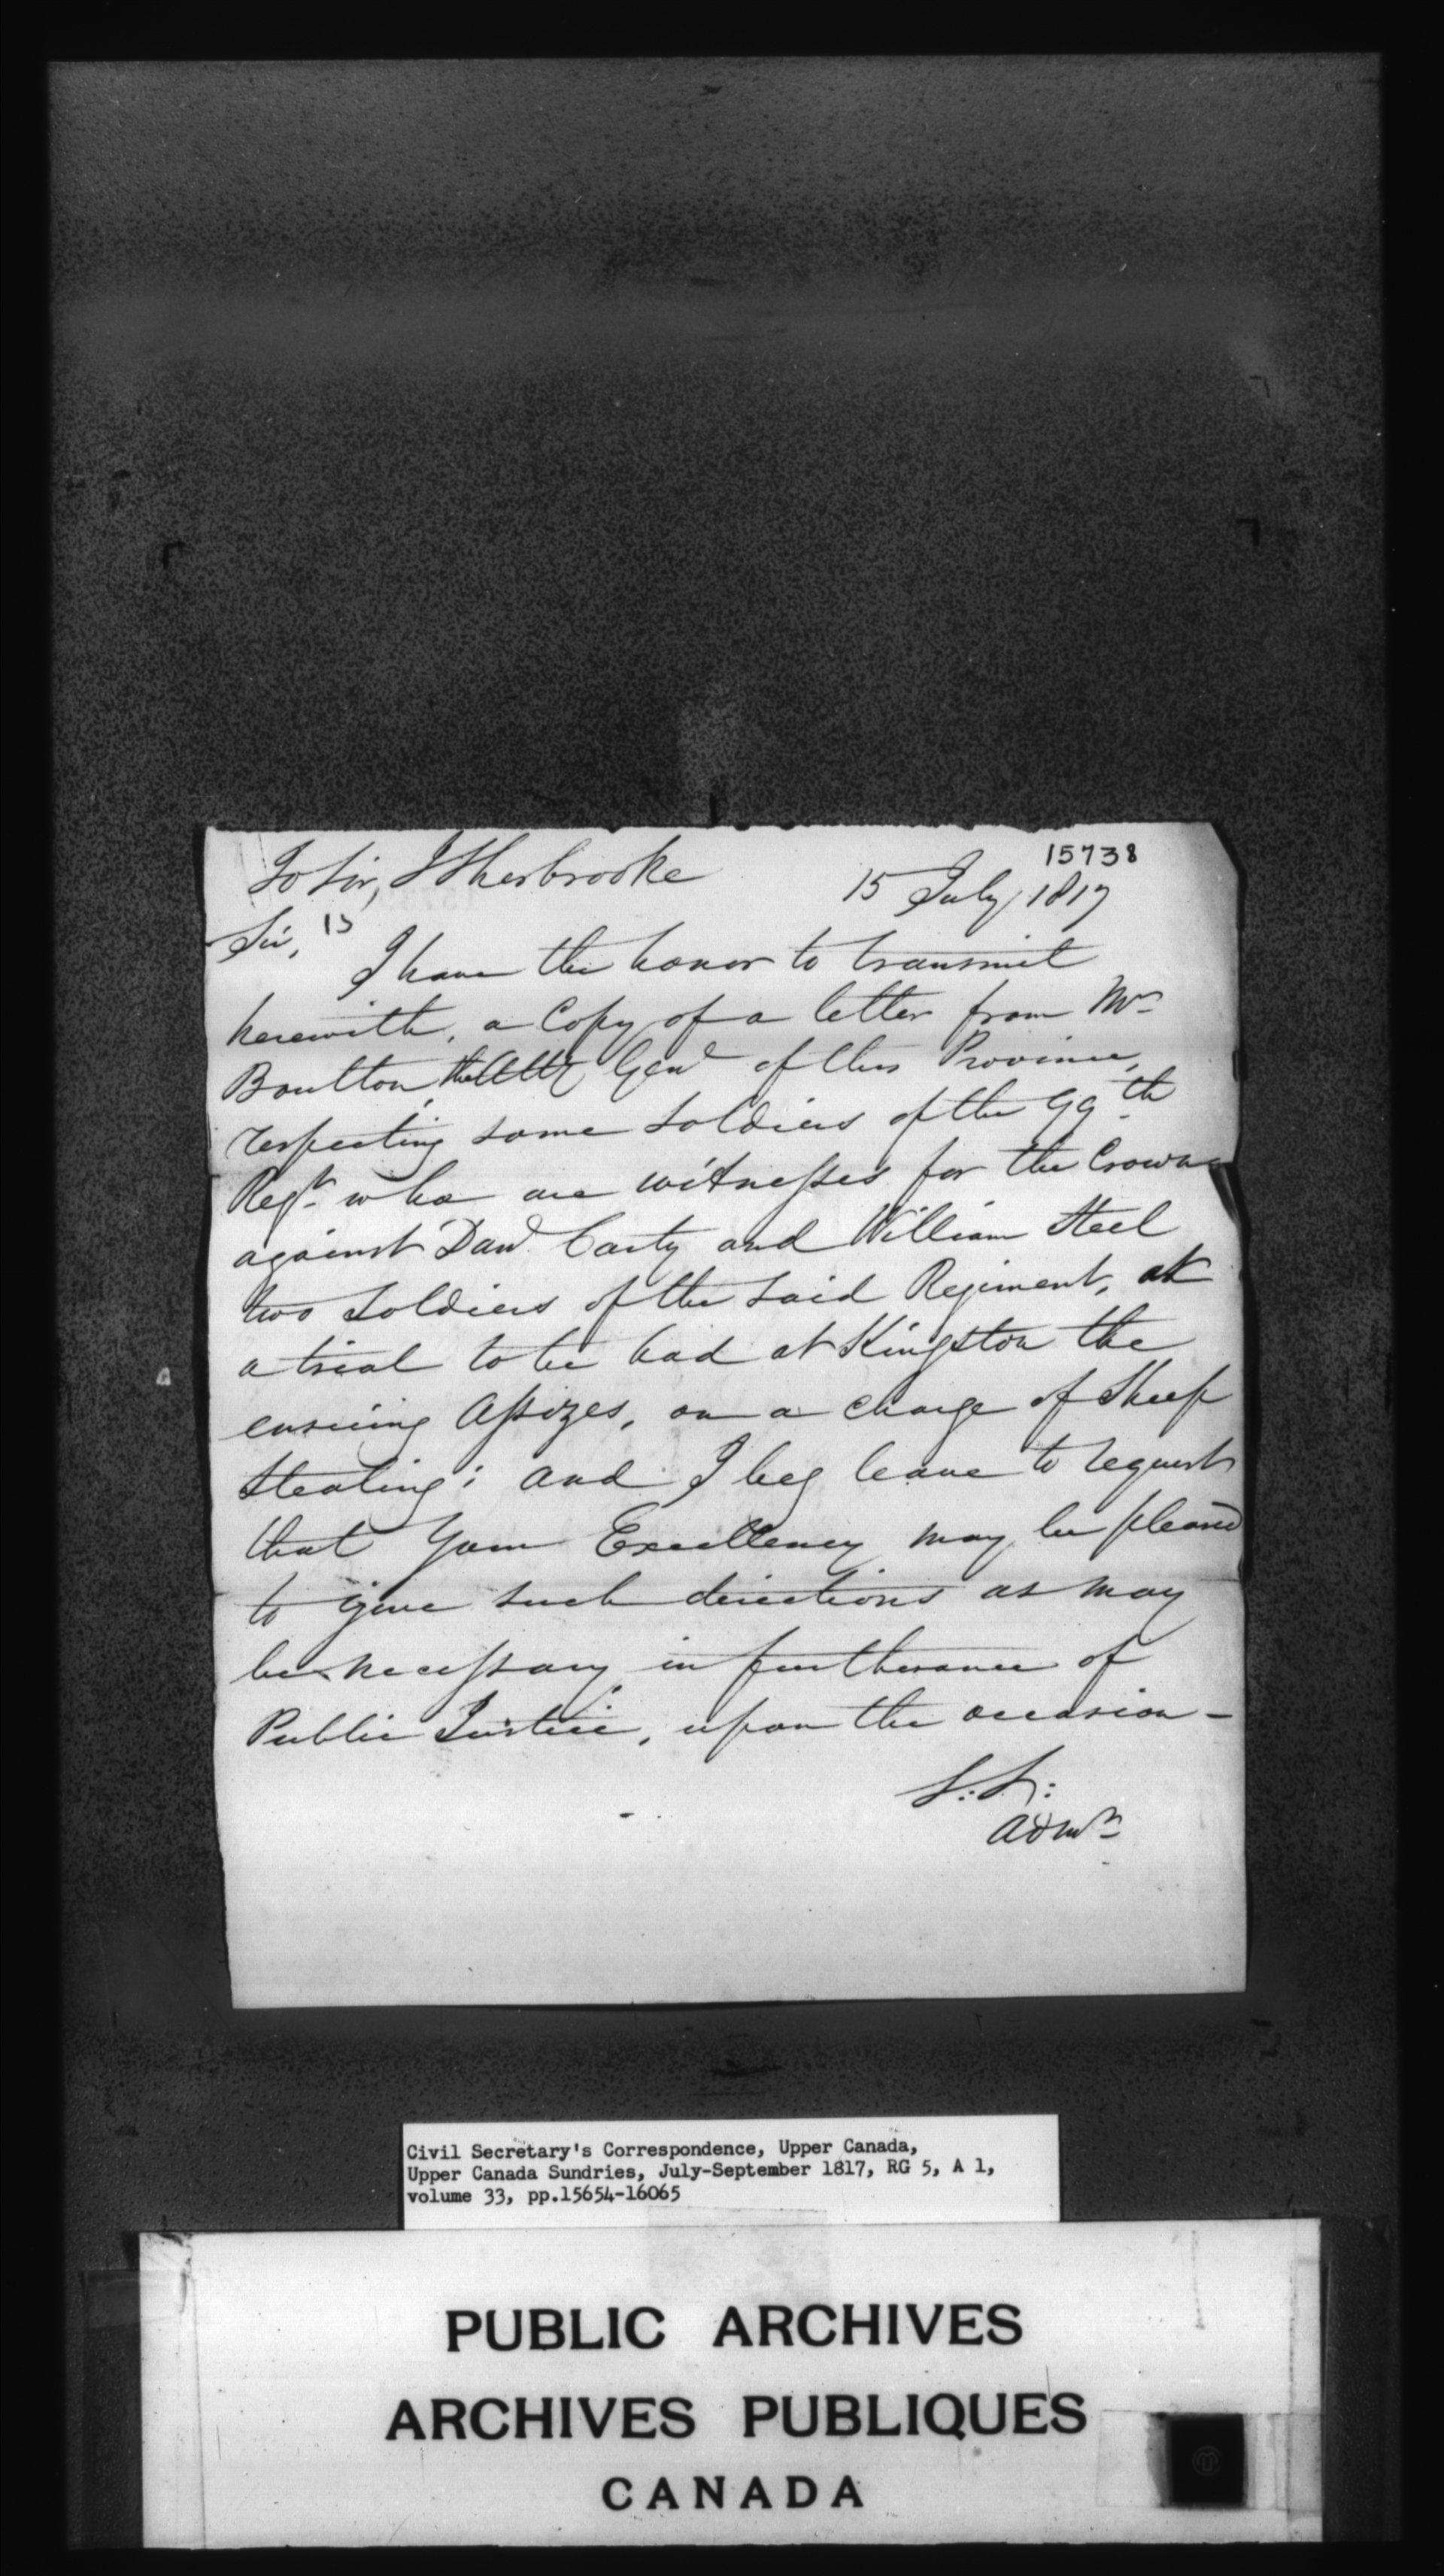 15738
To Sir, J Sherbrooke
15 July 1817
Sir, 15
I have the honor to transmit
herewith, a Copy of a letter from Mr
Boulton, the Atty Genl of this Province,
respecting some Soldiers of the 99th
Regt who are witnesses for the Crown
against Danl Carty and William Steel
two Soldiers of the said Regiment, at
a trial to be had at Kingston the
ensuing Assizes, on a charge of Sheep
Stealing; and I beg leave to request
that Your Excellency may be pleased
to give such directions as may
be necessary in furtherance of
Public Justice, upon the occasion -
S: S:
Admr
Civil Secretary's Correspondence, Upper Canada,
Upper Canada Sundries, July-September 1817, RG 5, A 1,
volume 33, pp.15654-16065
PUBLIC ARCHIVES
ARCHIVES PUBLIQUES
CANADA